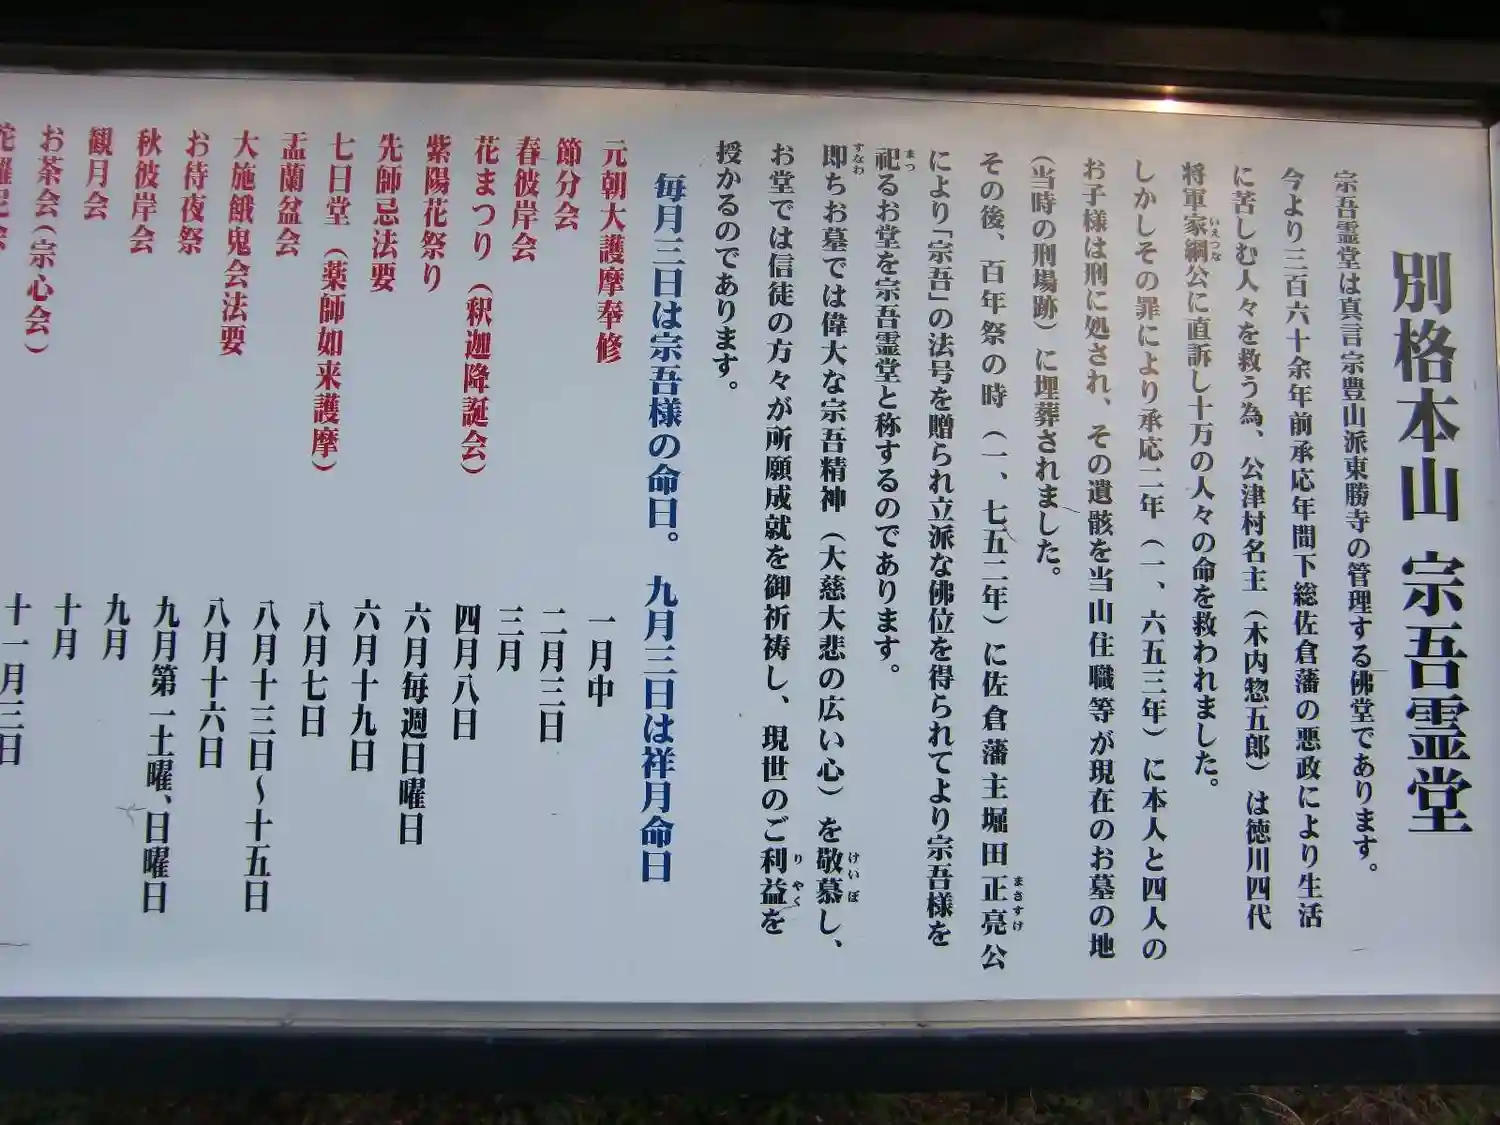 別格本山 宗吾霊堂
宗吾霊堂は真言宗豊山派東勝寺の管理する佛堂であります。
今より三百六十余年前承応年間下総佐倉藩の悪政により生活
に苦しむ人々を救う為、公津村名主(木内惣五郎)は徳川四代
将軍家綱公に直訴し十万の人々の命を救われました。
いえつな
しかしその罪により承応二年(一、六五三年)に本人と四人の
お子様は刑に処され、その遺骸を当山住職等が現在のお墓の地
(当時の刑場跡)に埋葬されました。
その後、百年祭の時(一、七五二年)に佐倉藩主堀田正亮公
まさすけ
により「宗吾」の法号を贈られ立派な佛位を得られてより宗吾様を
祀るお堂を宗吾霊堂と称するのであります。
まつ
即ちお墓では偉大な宗吾精神(大慈大悲の広い心)を敬慕し、
すなわ
けいぼ
お堂では信徒の方々が所願成就を御祈祷し、現世のご利益を
りやく
授かるのであります。
毎月三日は宗吾様の命日。 九月三日は祥月命日
元朝大護摩奉修 一月中
節分会 二月三日
春彼岸会 三月
花まつり(釈迦降誕会) 四月八日
紫陽花祭り 六月毎週日曜日
先師忌法要 六月十九日
七日堂(薬師如来護摩) 八月七日
盂蘭盆会 八月十三日~十五日
大施餓鬼会法要 八月十六日
お待夜祭 九月第一土曜、日曜日
秋彼岸会 九月
観月会 十月
お茶会(宗心会) 十一月三日